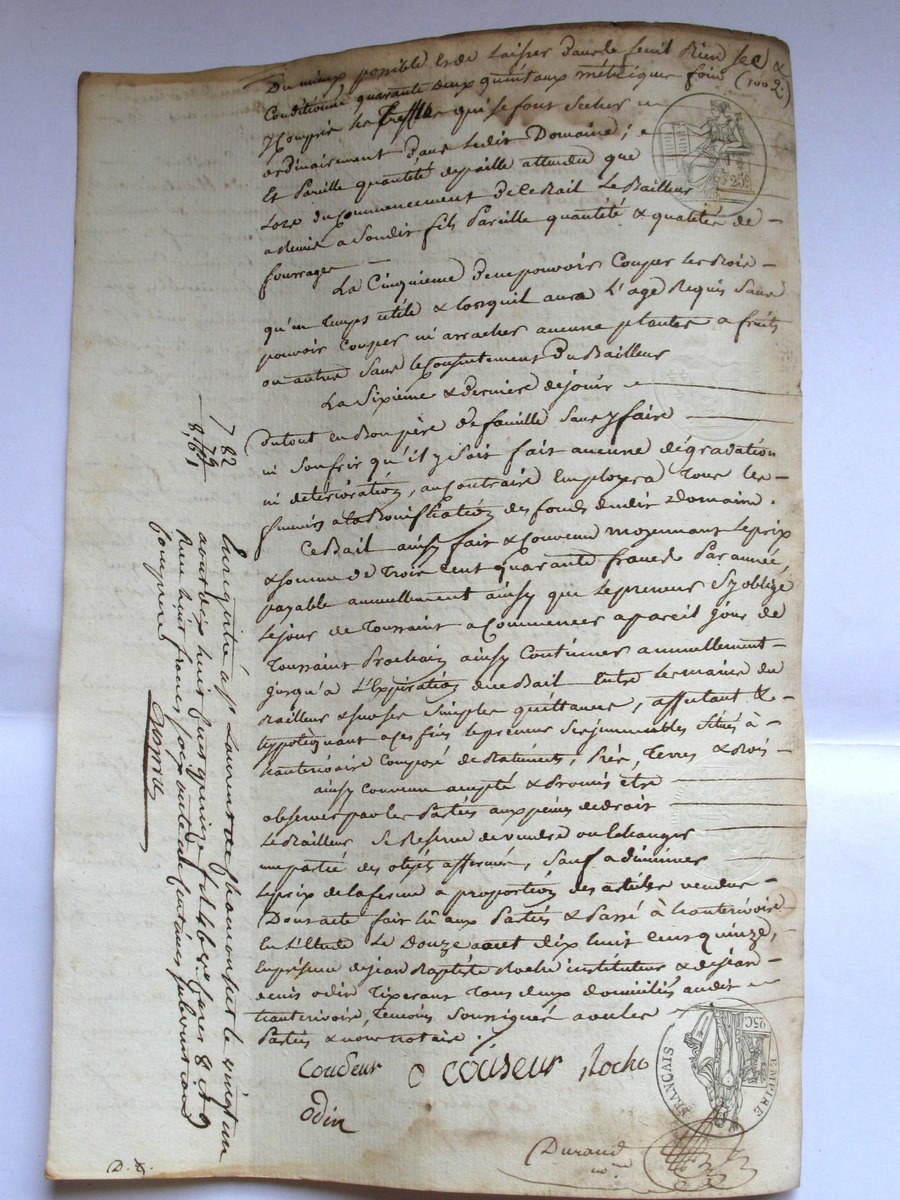 Du mieux possible & de laisser dans le fenil Bien sec &
Conditionné quarante deux quintaux métrique foin (100 2.)
y compris les qui se font secher
ordinairement dans ledit Domaine ;
Et Pareille quantité de paille attendu que
Lors du Commencement de ce Bail Le Bailleur
a Remis a Soudit fils Pareille quantité & qualité de
fourrage
La Cinquieme De ne pouvoir Couper les Bois
qu'en temps utile & lorsquil aura L'age Requis Sans
pouvoir Couper ni arracher aucune plantes a fruits
ou autres Sans le Consentement Du Bailleur
La Sixieme & derniere de jouir
du tout en Bon père De famille Sans y faire
ni Souffrir qu'il y Soit fait aucune dégradation
ni deterioration, au Contraire Employera Tous les
fumiers a la Bonification des fonds dudit Domaine.
Ce Bail ainsy fait & Convenu moyennant Le prix
& Somme de Trois Cent quarante francs Par année,
payable annuellement ainsy que le preneur S'y oblige
Le jour de Toussaint a Commencer a pareil jour de
Toussaint Prochain ainsy Continuer annuellement
jusqu'a L'Expiration du Bail Entre les mains du
Bailleur & Sur Ses Simples quittances, affectant &
hyppotéquant a ces fins le preneur Ses jmmeubles Situés à
hauterivoire Composé de Batiments, Prés, Terres & Bois
ainsy Convenu accepté & Promis etre
observer par les Parties aux peines de droit
Le Bailleur Se Reserve de vendre ou Echanger
une partie des objets affermés, Sauf a diminuer
le prix de la ferme à proportion des articles vendus
Dont acte fait lû aux Parties & Passé à hauterivoire
En L'Etude Le Douze aout dix huit Cent quinze,
En présence de jean Baptiste Roche instituteur & de jean
denis odin Tixerant Tous deux domiciliés audit
hauterivoire, Temoins Soussignés avec les
Parties & nous notaire.
Coudeur Couseur Roche
odin
Durand
nre
D. R.
7 82
79
8,61
Enregistré a St Laurent de Chamousset le vingt un
aout dix huit cent quinze fol 66 vo cases 8 et 9
Reçu huit francs soixante un centimes subvention
comprise
25 C
EMPIRE FRANÇAIS
25 C